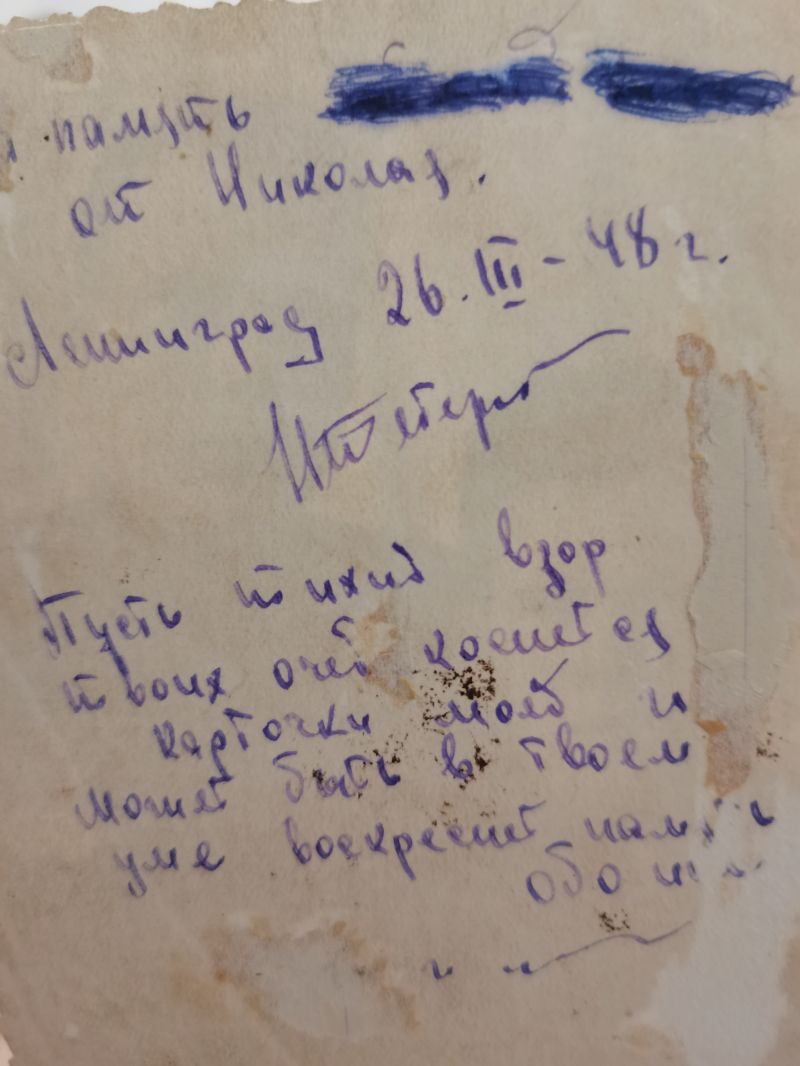 память
от Николая.
Ленинград 26.III-48 г.
Пусть тихий взор
твоих очей коснется
карточки моей и
может быть в твоем
уме воскреснет
обо